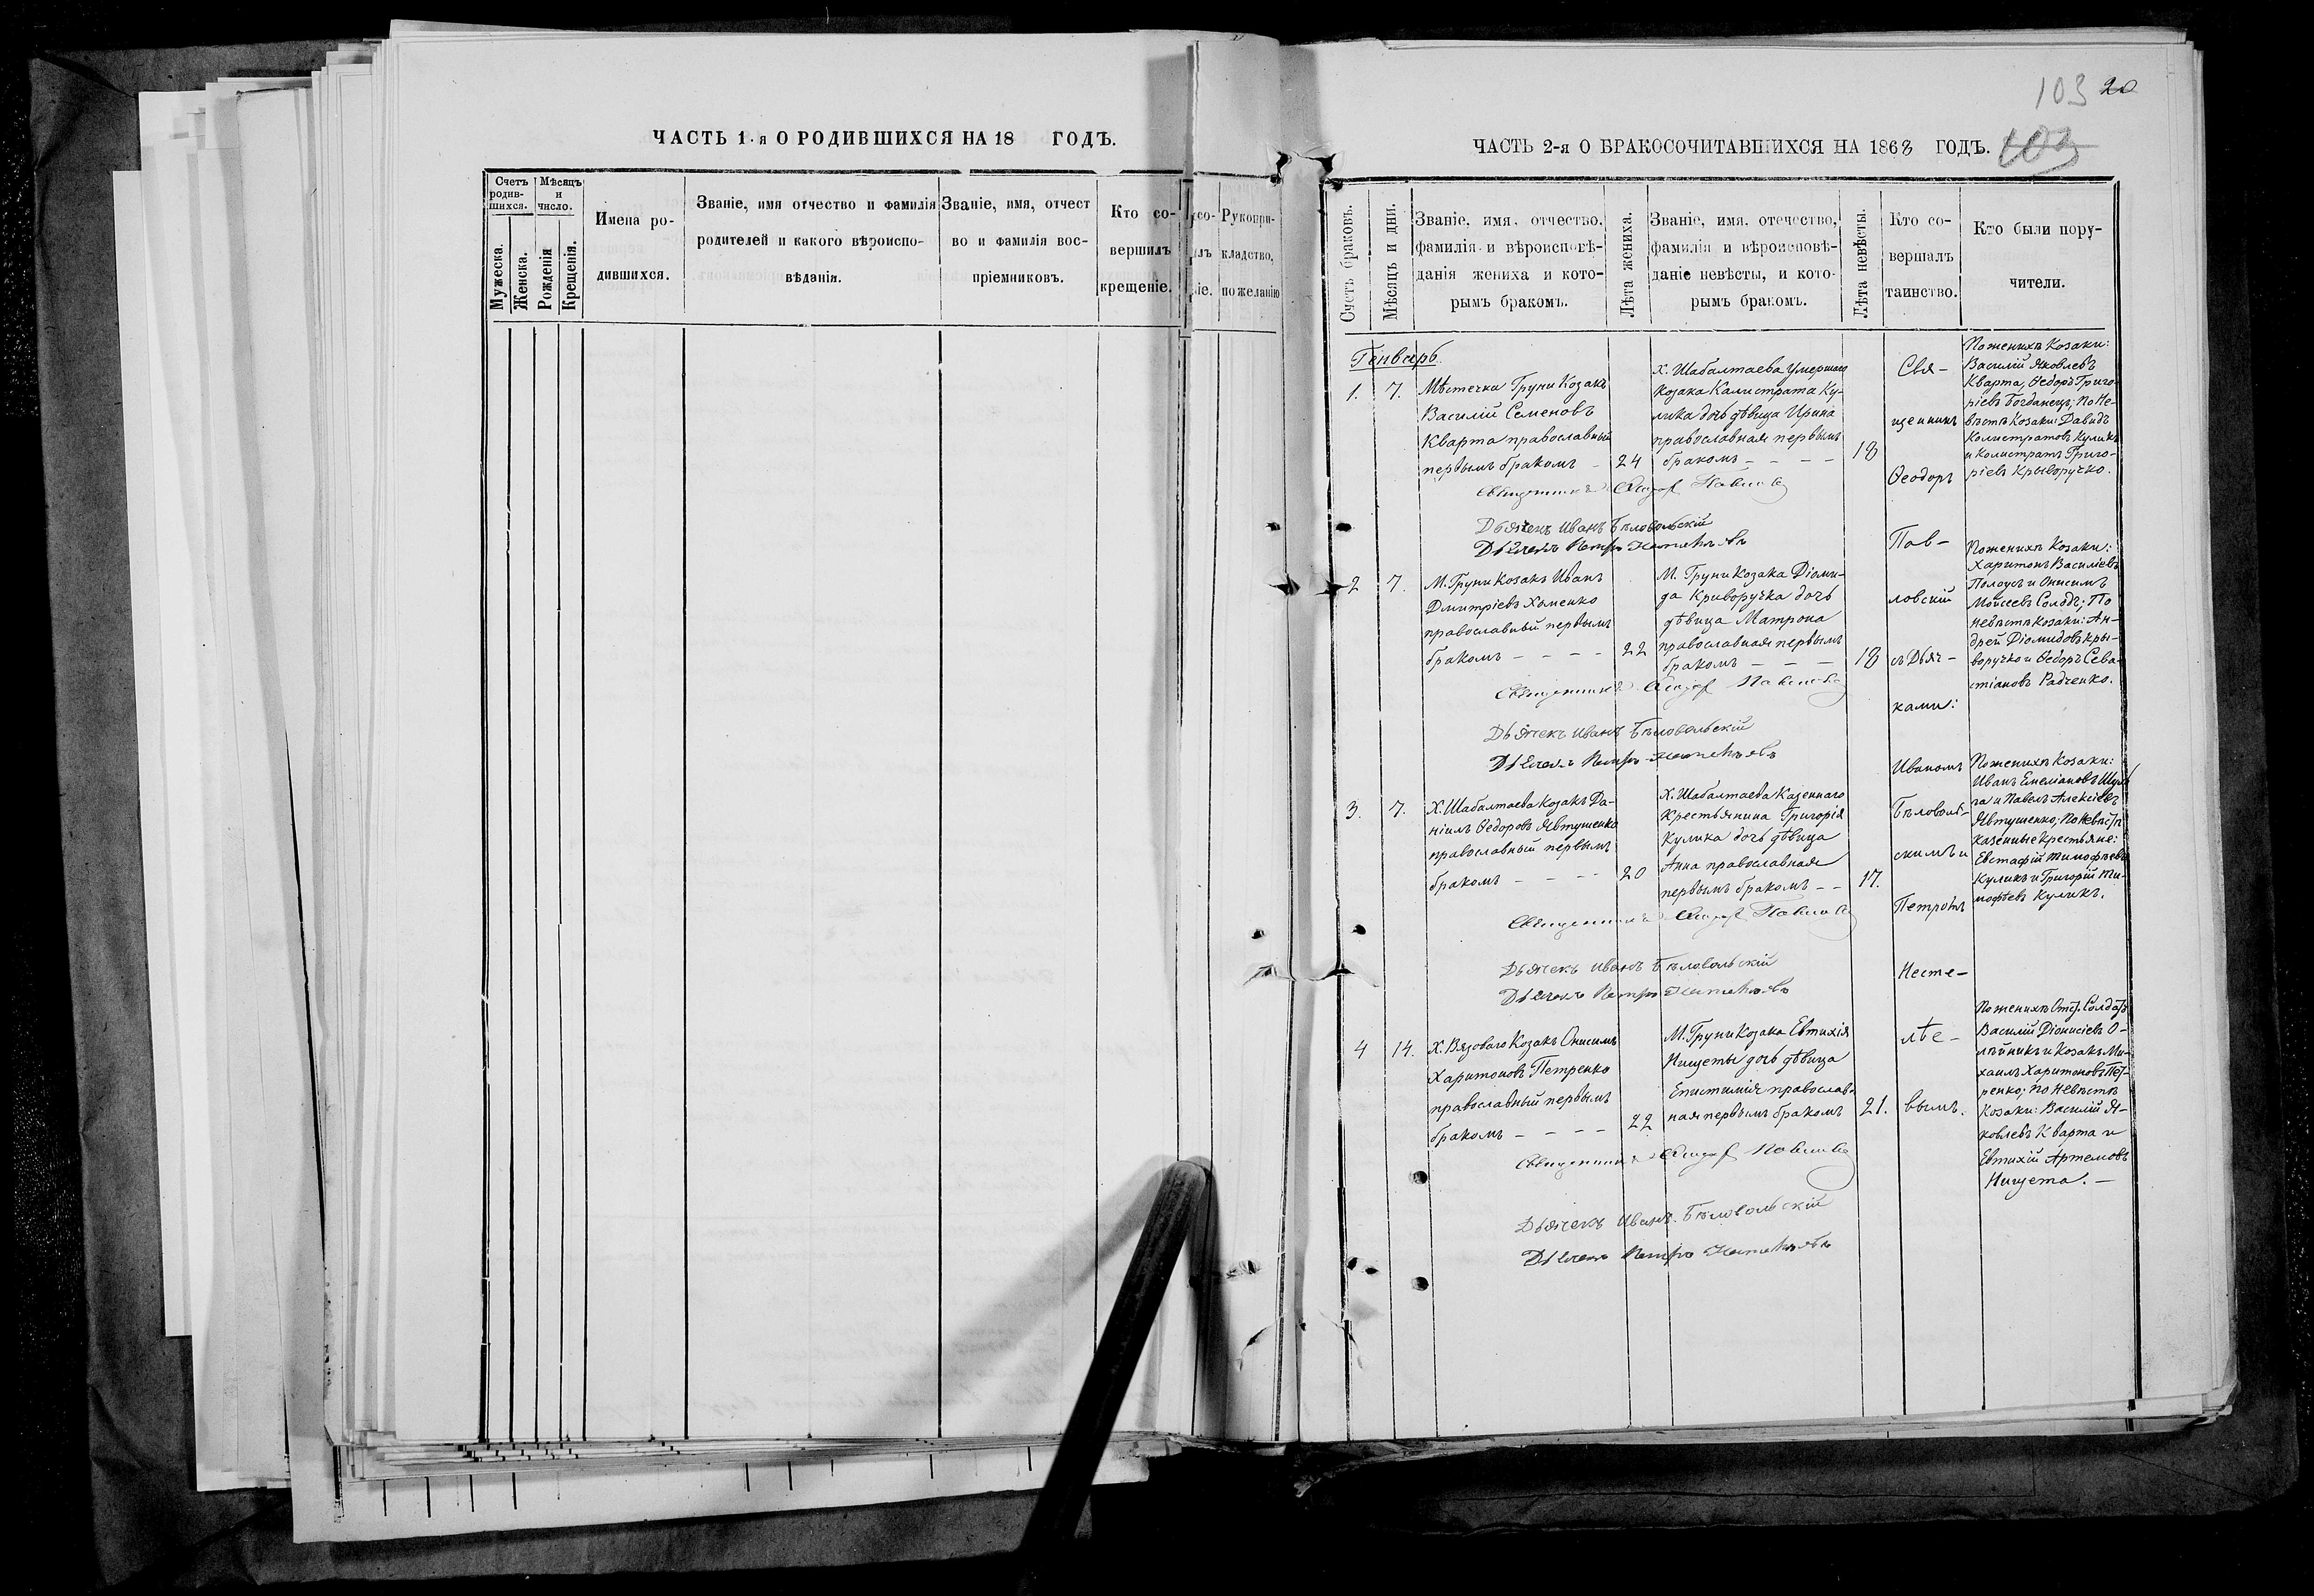 ЧАСТЬ 1-я О РОДИВШИХСЯ НА 18 ГОДЪ.
Счетъ родив-шихся.
Мужеска.
Женска.
Мѣсяцъ и число.
Рожденія
Крещенія.
Имена ро-
дившихся.
Званіе, имя отчество и фамилія
родителей и какого вѣроиспо-
вѣданія.
Званіе, имя, отчест
во и фамилія вос-
пріемниковъ.
Кто со-
вершилъ
крещеніе.
Рукопри-
кладство,
по желанію
103 20
ЧАСТЬ 2-я О БРАКОСОЧИТАВШИХСЯ НА 1868 ГОДЪ.
103
Счетъ браковъ.
Мѣсяцъ и дни.
Званіе, имя, отчество,
фамилія и вѣроисповѣ-
данія жениха и кото-
рымъ бракомъ.
Лѣта жениха.
Званіе, имя, отечество,
фамилія и вѣроисповѣ-
даніе невѣсты, и кото-
рымъ бракомъ.
Лѣта невѣсты.
Кто со-
вершалъ
таинство.
Кто были пору-
чители.
Генварь
1. 7.
Мѣстечка Груни Козакъ
Василій Семеновъ
Кварта православный
первымъ бракомъ – 24
Х. Шабалтаева Умершаго
Козака Калистрата Ку-
лика дочь дѣвица Ирина
православная первымъ
бракомъ – – – – 18
По женихѣ Козаки:
Василій Яковлевъ
Кварта, Ѳедоръ Григо-
ріевъ Богданецъ; По Не-
вѣстѣ Козаки: Давидъ
Колистратовъ Куликъ
и Колистратъ Григо-
ріевъ Крыворучко.
Священникъ Ѳеодоръ Павловскій
Дьячекъ Иванъ Бѣловольскій
Дьячекъ Петръ Нестелѣевъ
2 7.
М. Груни Козакъ Иванъ
Дмитріевъ Хоменко
православный первымъ
бракомъ – – – – 22
М. Груни Козака Діоми-
да Криворучка дочь
дѣвица Матрона
православная первымъ
бракомъ – – – 18
По женихѣ Козаки:
Харитонъ Василіевъ
Полоусъ и Онисимъ
Мойсеевъ Солодъ; По
невѣстѣ Козаки: Ан-
дрей Діомидовъ Кры-
воручко и Ѳедоръ Сева-
стіановъ Радченко.
Священникъ Ѳеодоръ Павловскій
Дьячекъ Иванъ Бѣловольскій
Дьячекъ Петръ Нестелѣевъ
3. 7.
Х. Шабалтаева Козакъ Да-
ніилъ Ѳедоровъ Явтушенко
православный первымъ
бракомъ – – – – 20
Х. Шабалтаева Казеннаго
Крестьянина Григорія
Кулика дочь дѣвица
Анна православная
первымъ бракомъ – – 17.
По женихѣ Козаки:
Иванъ Емеліановъ Шуль
га и Павелъ Алексіевъ
Явтушенко; По Невѣстѣ
Казенные Крестьяне:
Евстафій Тимофѣевъ
Куликъ и Григорій Ти-
мофѣевъ Куликъ.
Священникъ Ѳеодоръ Павловскій
Дьячекъ Иванъ Бѣловольскій
Дьячекъ Петръ Нестелѣевъ
4 14.
Х. Вязоваго Козакъ Онисимъ
Харитоновъ Петренко
православный первымъ
бракомъ – – – – 22
М. Груни Козака Евтихія
Нищеты дочь дѣвица
Епистимія православ-
ная первымъ бракомъ 21.
По женихѣ Отст. Солдатъ
Василій Діонисіевъ О-
лѣйникъ и Козакъ Ми-
хаилъ Харитоновъ Пет-
ренко; по Невѣстѣ
Козаки: Василій Я-
ковлевъ Кварта и
Евтихій Артемовъ
Нищета. –
Священникъ Ѳеодоръ Павловскій
Дьячекъ Иванъ Бѣловольскій
Дьячекъ Петръ Нестелѣевъ
Свя-
щенникъ
Ѳеодоръ
Пав-
ловскій
съ Дьяч-
ками:
Иваномъ
Бѣловоль-
скимъ и
Петромъ
Несте-
лѣе-
вымъ.